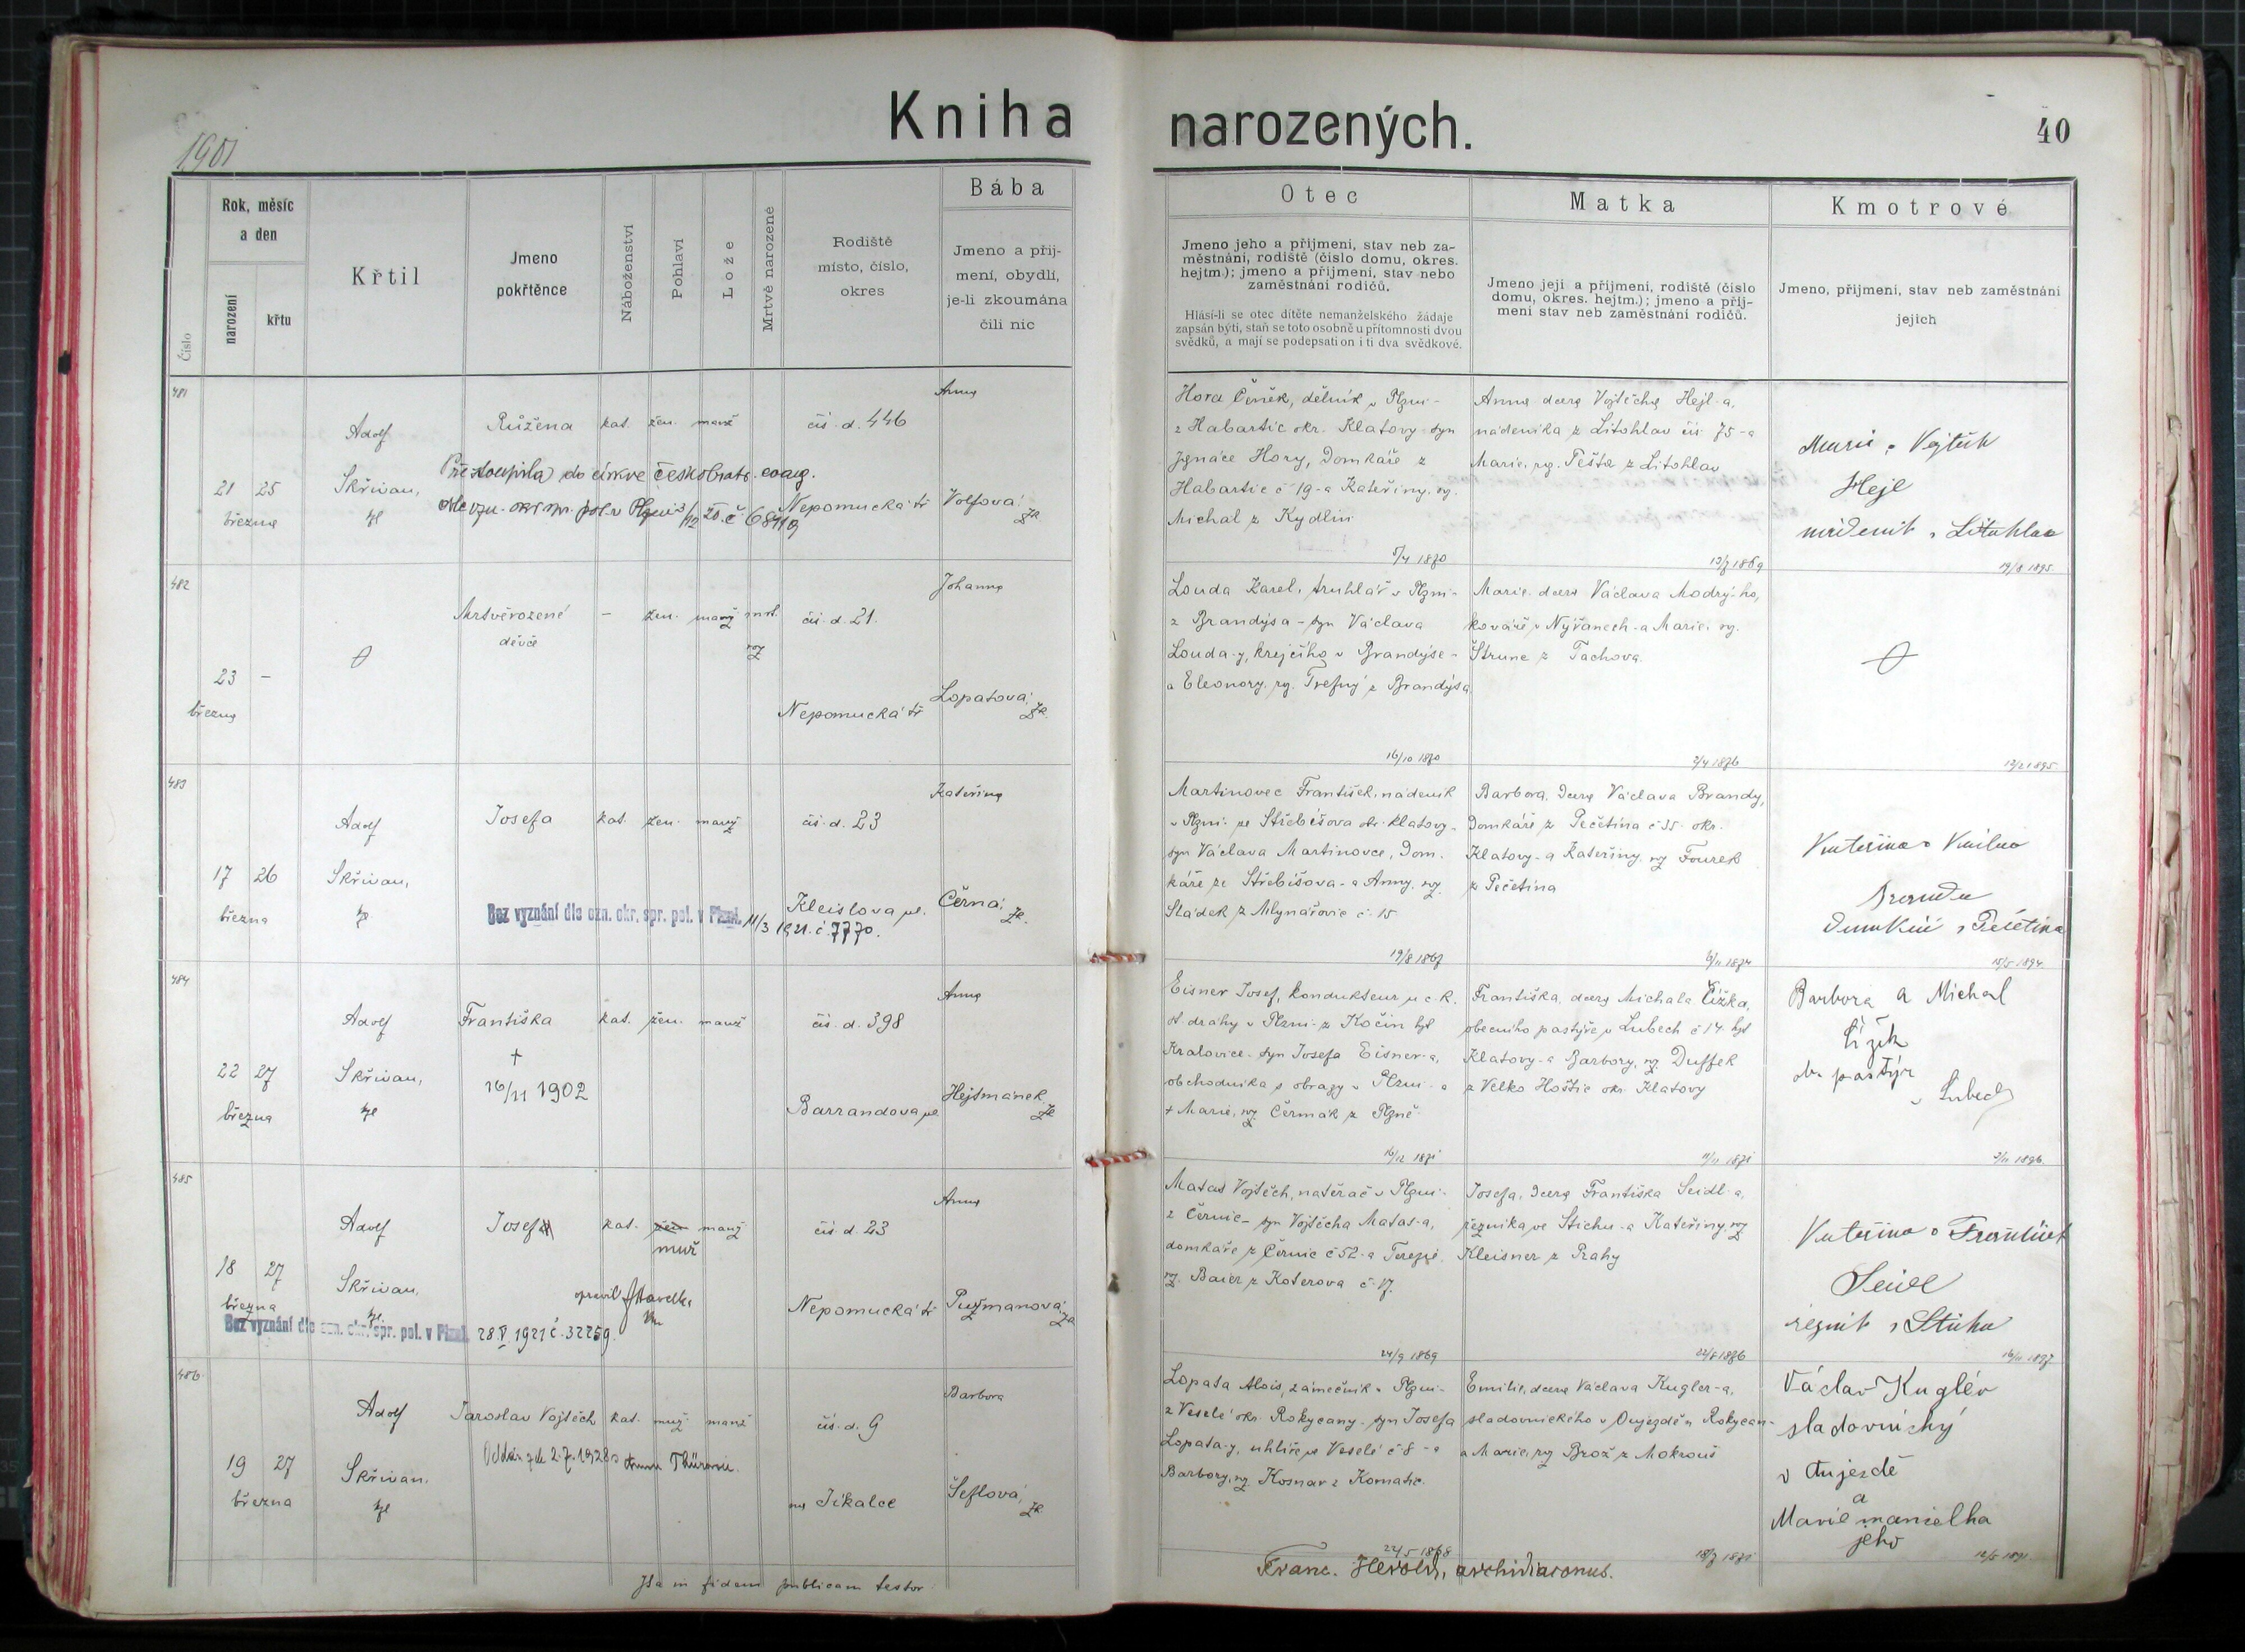 1901
Kniha narozených.
40
Číslo
Rok, měsíc
a den
narození
křtu
Křtil
Jmeno
pokřtěnce
Náboženství
Pohlaví
Lože
Mrtvě narozené
Rodiště
místo, číslo,
okres
Bába
Jmeno a přij-
mení, obydlí,
je-li zkoumána
čili nic
Otec
Jmeno jeho a přijmení, stav neb za-
městnání, rodiště (číslo domu, okres.
hejtm.); jmeno a přijmení, stav nebo
zaměstnání rodičů.
Hlásí-li se otec dítěte nemanželského žádaje
zapsán býti, staň se toto osobně u přítomnosti dvou
svědků, a mají se podepsati on i ti dva svědkové.
Matka
Jmeno její a přijmení, rodiště (číslo
domu, okres. hejtm.); jmeno a přij-
mení stav neb zaměstnání rodičů.
Kmotrové
Jmeno, přijmení, stav neb zaměstnání
jejich
481
21 25
března
Adolf
Skřivan,
Růžena
kat. žen. manž
čís. d. 446
Nepomucká tř
Anna
Volfova
Přestoupila do církve českobratr. evang.
Hora Čeněk, dělník v Plzni-
z Habartic okr. Klatovy-syn
Ignáce Hory, domkáře z
Habartic č 19-a Kateřiny, rz.
Michal z Kydlin
5/4 1870
Anna dcera Vojtěcha Hejl-a,
nádeníka z Litohlav čís 75-a
Marie, rz. Pešta z Litohlav
13/7 1869
Marie a Vojtěch
Hejl
nádeník z Litohlav
19/8 1895.
482
23 -
března
Mrtvěrozené
děvče
- žen. manž mrt.
roz
čís. d. 21.
Nepomucká tř
Johanna
Lopatova,
Louda Karel, truhlář v Plzni-
z Brandýsa-syn Václava
Louda-y, krejčího v Brandýse-
a Eleonory, rz. Trefný z Brandýsa
16/10 1870
Marie, dcera Václava Modrý-ho,
kováře v Nýřanech-a Marie, rz.
Štrunc z Tachova.
2/4 1876
12/2 1895.
483
17 26
března
Adolf
Skřivan,
Josefa
kat. žen. manž
čís. d. 23
Kleislova ul.
Kateřina
Černá,
Bez vyznání dle ozn. okr. spr. pol. v Plzni. 11/3 1921. č. 7770.
Martinovec František, nádeník
v Plzni-ze Střebišova okr. Klatovy-
syn Václava Martinovce, dom-
káře ze Střebišova-a Anny, rz.
Sládek z Mlynařovic č. 15.
19/8 1867
Barbora, dcera Václava Brandy,
domkáře z Pečetína č 35. okr.
Klatovy-a Kateřiny, rz Fourek
z Pečetína
6/11 1874
Kateřina a
domkář z Pečetína
15/5 1894.
484
22 27
března
Adolf
Skřivan,
Františka
†
16/11 1902
kat. žen. manž
čís. d. 398
Barrandova ul
Anna
Hejtmánek
Eisner Josef, kondukteur u c.k.
st dráhy v Plzni-z Kočín hjt
Kralovice-syn Josefa Eisner-a,
obchodníka s obrazy v Plzni-a
† Marie, rz Čermák z Plzně
16/12 1871
Františka, dcera Michala Čížka,
obecního pastýře v Lubech č 14. hjt
Klatovy-a Barbory, rz Duffek
z Velko Hoštic okr. Klatovy
11/11 1871
Barbora a Michal
Čížek
ob. pastýř
v Lubech
2/11 1896.
485
18 27
března
Adolf
Skřivan,
Josef
kat. žen manž
muž
čís. d. 23
Nepomucká tř
Anna
Puzmanová,
opravil JHavelka
Bez vyznání dle ozn. okr. spr. pol. v Plzni. 28.V. 1921 č. 32259.
Matas Vojtěch, natěrač v Plzni-
z Černic-syn Vojtěcha Matas-a,
domkáře z Černic č 52-a Terezie,
rz. Baier z Koterova č-17.
24/9 1869
Josefa, dcera Františka Seidl-a,
řezníka ve Stichu-a Kateřiny, rz
Kleisner z Prahy
22/8 1876
Kateřina a František
Seidl
řezník z Stichu
16/11 1897
486
19 27
března
Adolf
Skřivan,
Jaroslav Vojtěch
kat. muž. manž
čís. d. 9
na Jíkalce
Barbora
Šeflová,
Oddán zde 2.7.1928 s Annou Thürovou.
Lopata Alois, zámečník v Plzni-
z Veselé okr. Rokycany-syn Josefa
Lopata-y, uhlíře ve Veselé č 8-a
Barbory, rz. Kosnar z Kornatic.
22/5 1868
Emilie, dcera Václava Kugler-a,
sladovnického v Oujezdě u Rokycan-
a Marie, rz Brož z Mokrouš
18/7 1871
Václav Kuglér
sladovnický
v Oujezdě
a
Marie manželka
jeho
12/5 1891.
Ita in fidem publicam testor:
Franc. Herold, archidiaconus.